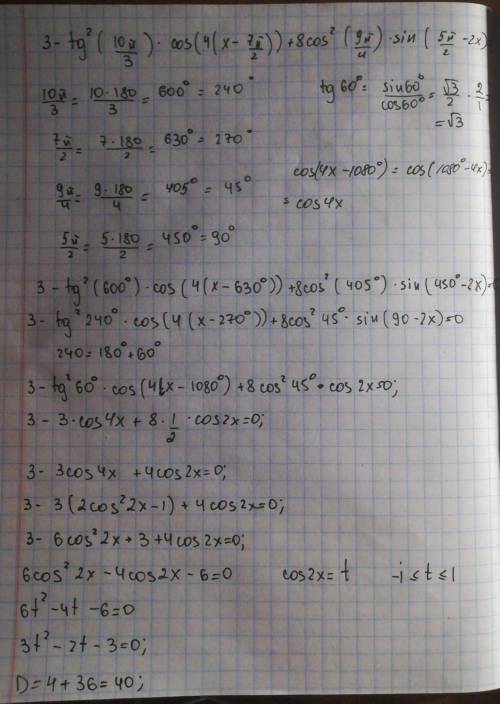 3 - tg² (10π/3) · cos(4(x - 7π/2)) + 8cos² (9π/4) · sin(5π/2 - 2x)
10π/3 = 10·180/3 = 600° = 240°
tg 60° = sin60°/cos60° = √3/2 · 2/1 =
= √3
7π/2 = 7·180/2 = 630° = 270°
9π/4 = 9·180/4 = 405° = 45°
cos(4x - 1080°) = cos(1080° - 4x) =
= cos4x
5π/2 = 5·180/2 = 450° = 90°
3 - tg² (600°) · cos(4(x - 630°)) + 8cos² (405°) · sin(450° - 2x) =
3 - tg² 240° · cos(4(x - 270°)) + 8cos² 45° · sin(90 - 2x) = 0
240 = 180° + 60°
3 - tg² 60° · cos(4x - 1080°) + 8cos² 45° · cos2x = 0;
3 - 3·cos4x + 8·1/2 · cos2x = 0;
3 - 3cos4x + 4cos2x = 0;
3 - 3(2cos² 2x - 1) + 4cos2x = 0;
3 - 6cos² 2x + 3 + 4cos2x = 0;
6cos² 2x - 4cos2x - 6 = 0 cos2x = t -1 ≤ t ≤ 1
6t² - 4t - 6 = 0
3t² - 2t - 3 = 0;
D = 4 + 36 = 40;